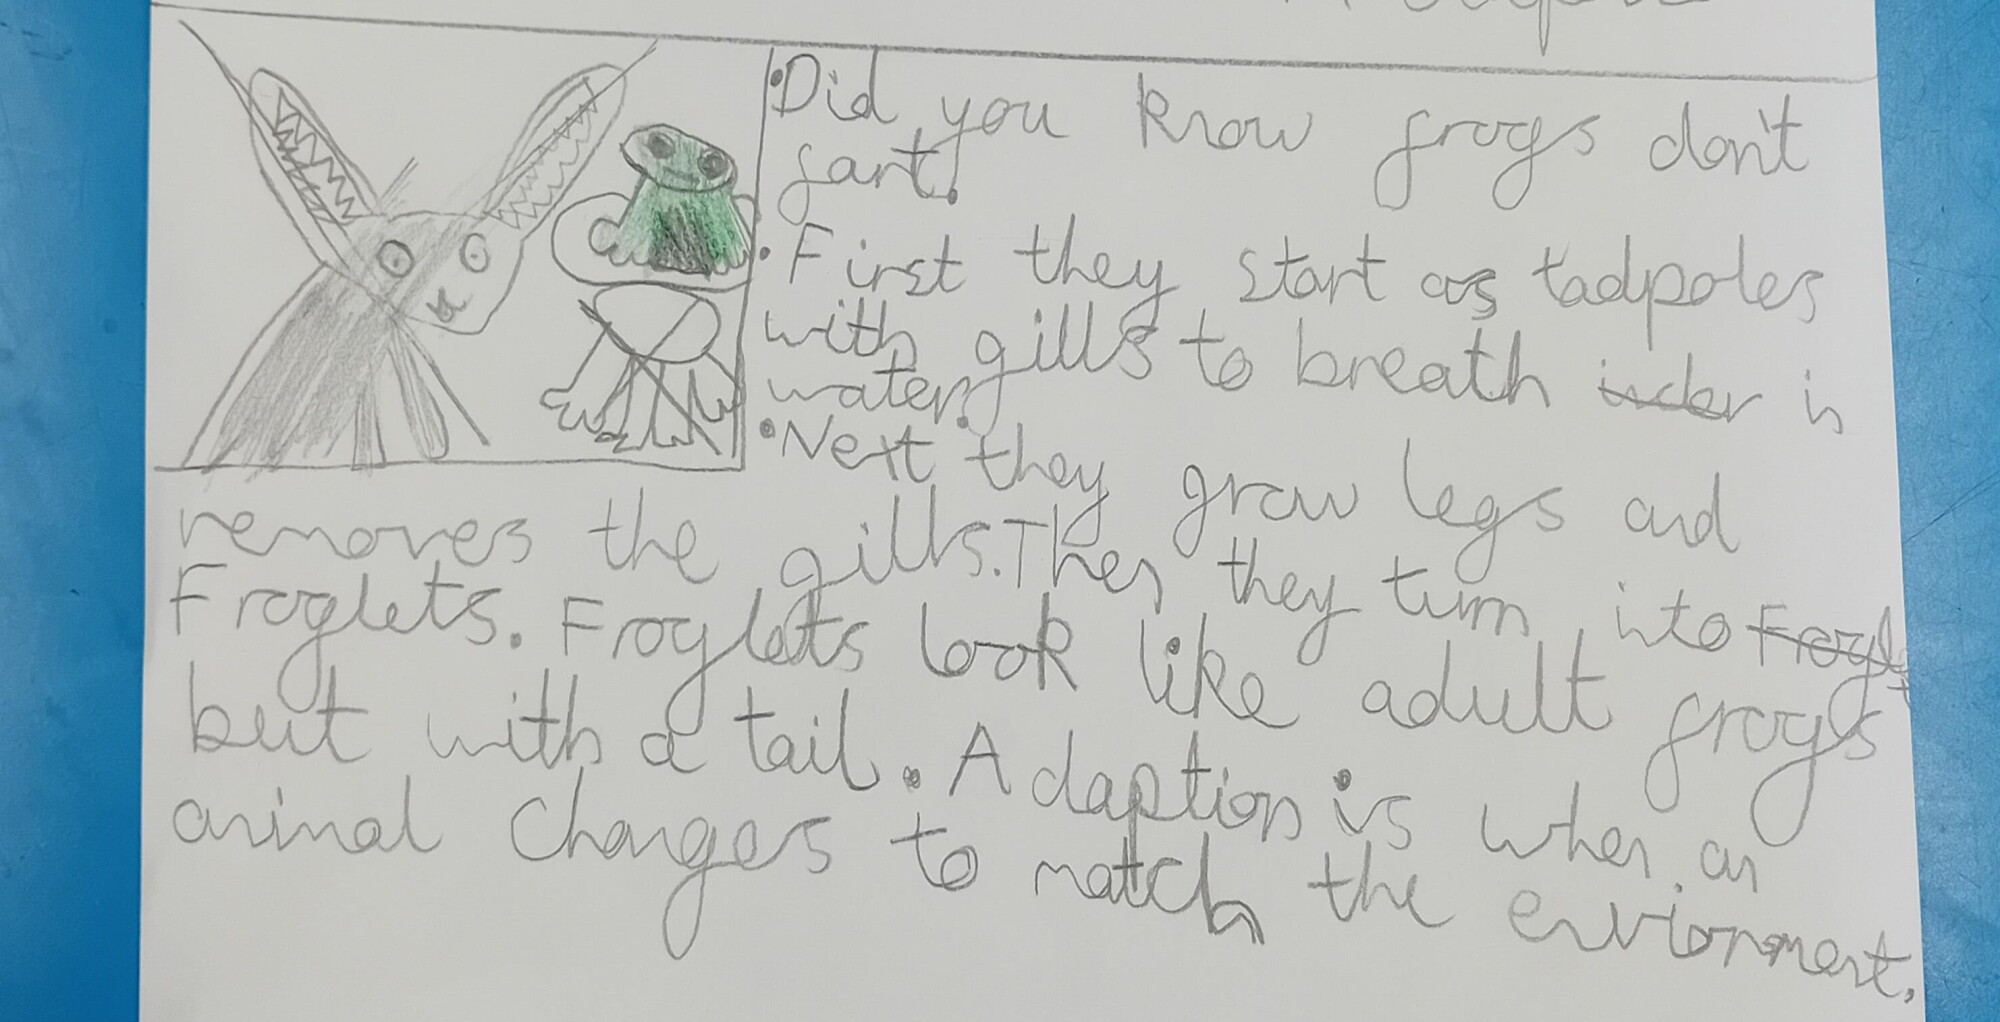 •Did you know frogs don't
fart.
•First they start as tadpoles
with gills to breath in
water.
•Next they grow legs and
removes the gills. Then they turn into
Froglets. Froglets look like adult frogs
but with a tail. Adaption is when an
animal changes to match the enviornment.